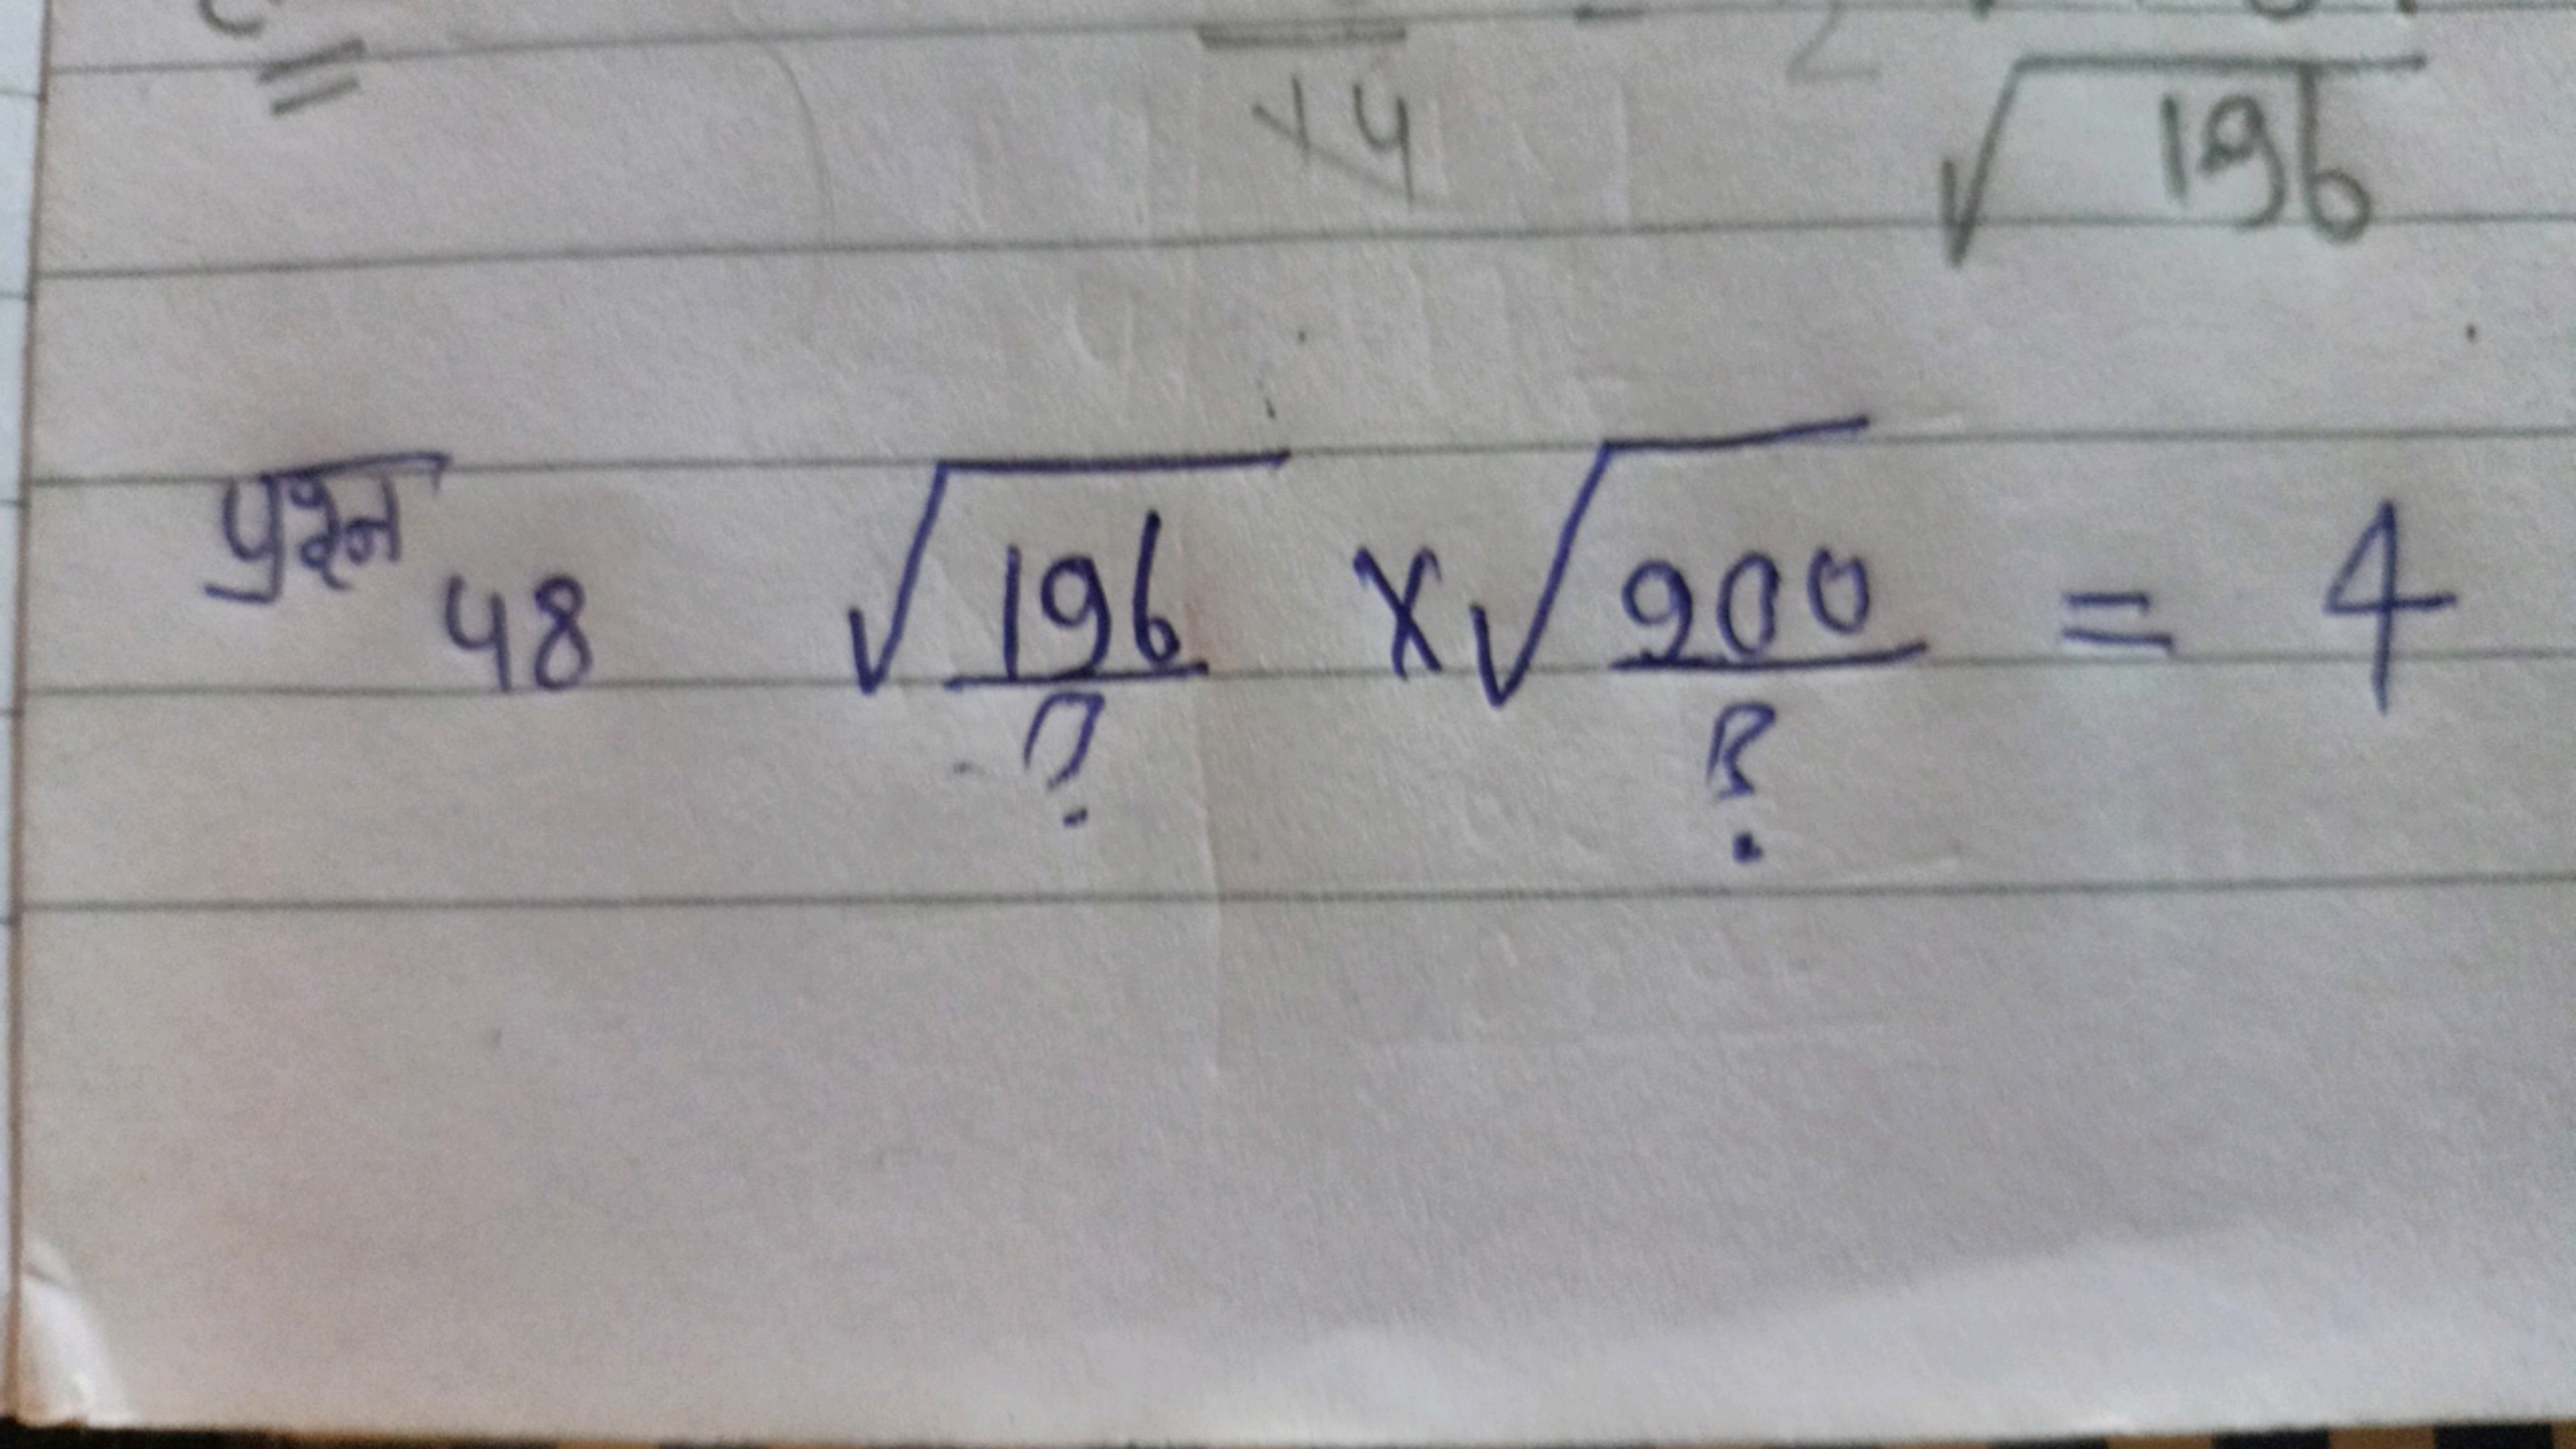 14
√196
प्रश्न 48 √196/? × √900/? = 4